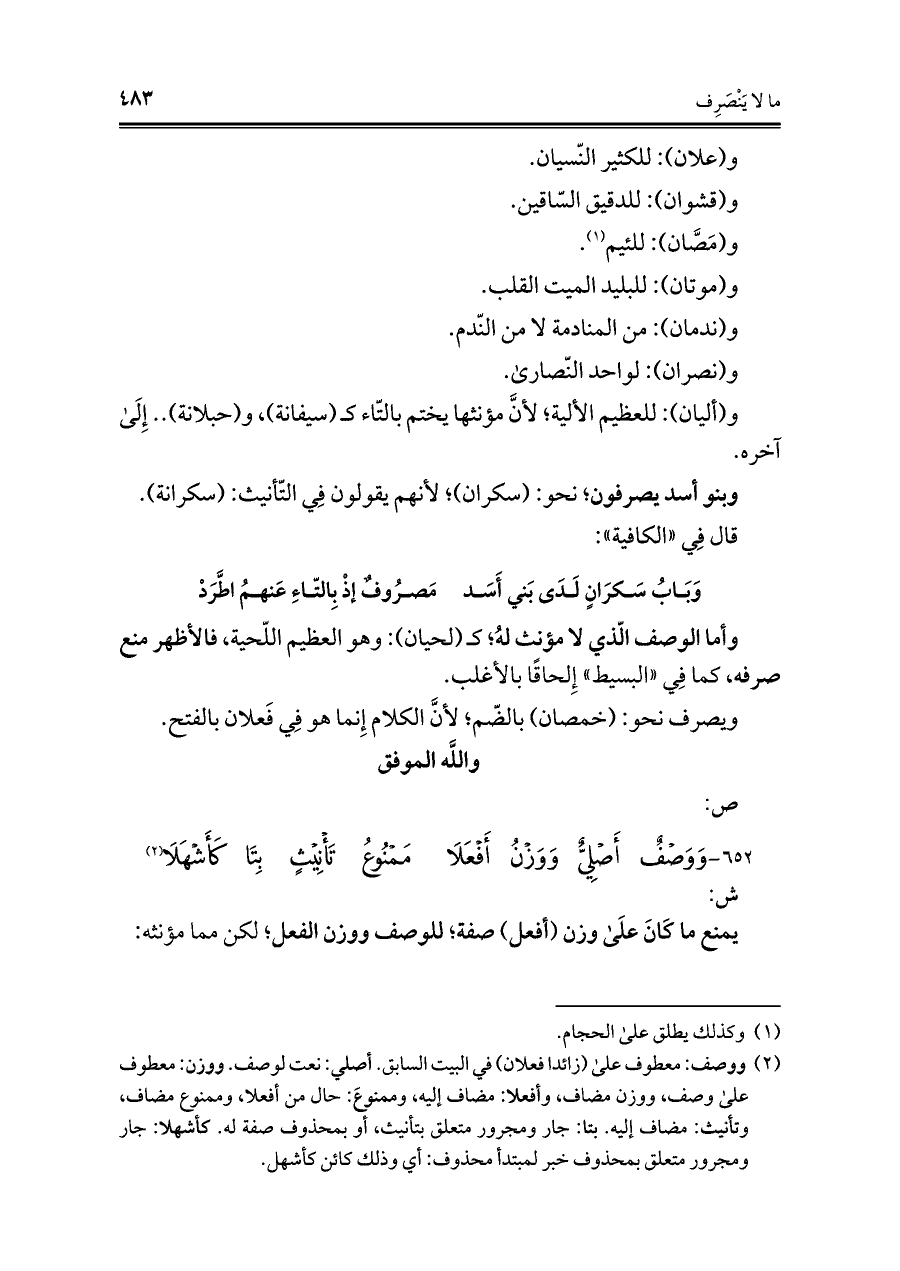 ما لا يَنْصَرِف ٤٨٣
و(علان): للكثير النّسيان.
و(قشوان): للدقيق السّاقين.
و(مَصَّان): للئيم(١).
و(موتان): للبليد الميت القلب.
و(ندمان): من المنادمة لا من النّدم.
و(نصران): لواحد النّصارىٰ.
و(أليان): للعظيم الألية؛ لأنَّ مؤنثها يختم بالتّاء كـ(سيفانة)، و(حبلانة).. إِلَىٰ
آخره.
وبنو أسد يصرفون؛ نحو: (سكران)؛ لأنهم يقولون فِي التّأنيث: (سكرانة).
قال فِي «الكافية»:
وَبَـابُ سَـكرَانٍ لَـدَى بَني أَسَـد مَصـرُوفٌ إذْ بِالتّـاءِ عَنهـمُ اطَّرَدْ
وأما الوصف الّذي لا مؤنث لهُ؛ كـ(لحيان): وهو العظيم اللّحية، فالأظهر منع
صرفه، كما فِي «البسيط» إِلحاقًا بالأغلب.
ويصرف نحو: (خمصان) بالضّم؛ لأنَّ الكلام إِنما هو فِي فَعلان بالفتح.
واللَّه الموفق
ص:
٦٥٢-وَوَصْفٌ أَصْلِيٌّ وَوَزْنُ أَفْعَلَا مَمْنُوعُ تَأْنِيْثٍ بِتَا كَأَشْهَلَا(٢)
ش:
يمنع ما كَانَ علَىٰ وزن (أفعل) صفة؛ للوصف ووزن الفعل؛ لكن مما مؤنثه:
(١) وكذلك يطلق علىٰ الحجام.
(٢) ووصف: معطوف علىٰ (زائدا فعلان) في البيت السابق. أصلي: نعت لوصف. ووزن: معطوف
علىٰ وصف، ووزن مضاف، وأفعلا: مضاف إليه، وممنوعَ: حال من أفعلا، وممنوع مضاف،
وتأنيث: مضاف إليه. بتا: جار ومجرور متعلق بتأنيث، أو بمحذوف صفة له. كأشهلا: جار
ومجرور متعلق بمحذوف خبر لمبتدأ محذوف: أي وذلك كائن كأشهل.